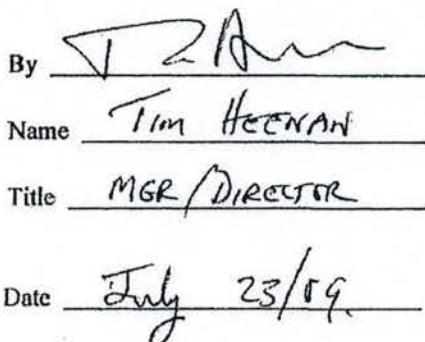 By
Name Tim HEENAN
Title MGR/DIRECTOR
Date July 23/09.